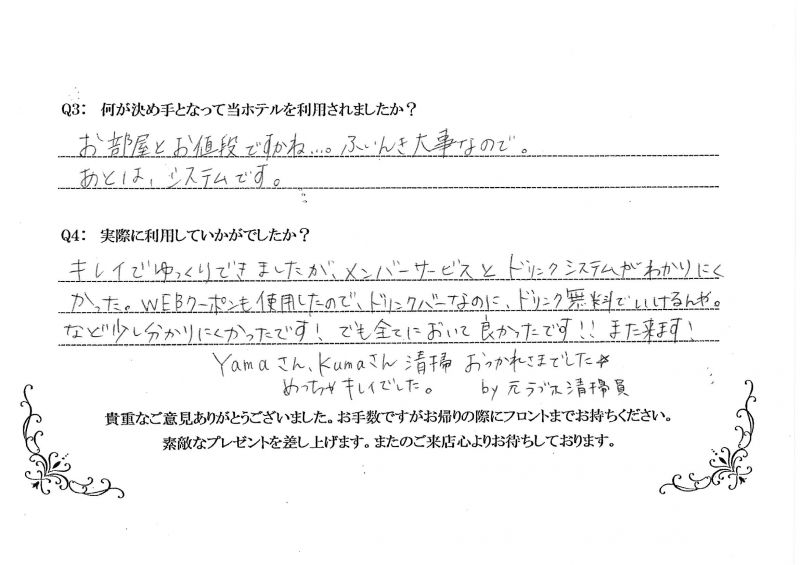 Q3： 何が決め手となって当ホテルを利用されましたか？
お部屋とお値段ですかね…。ふいんき大事なので。
あとは、システムです。
Q4： 実際に利用していかがでしたか？
キレイでゆっくりできましたが、メンバーサービスとドリンクシステムがわかりにく
かった。WEBクーポンも使用したので、ドリンクバーなのに、ドリンク無料でいけるんや。
など少し分かりにくかったです！でも全てにおいて良かったです！！また来ます！
Yamaさん、Kumaさん清掃 おつかれさまでした☆
めっちゃキレイでした。 by 元ラブホ清掃員
貴重なご意見ありがとうございました。お手数ですがお帰りの際にフロントまでお持ちください。
素敵なプレゼントを差し上げます。またのご来店心よりお待ちしております。